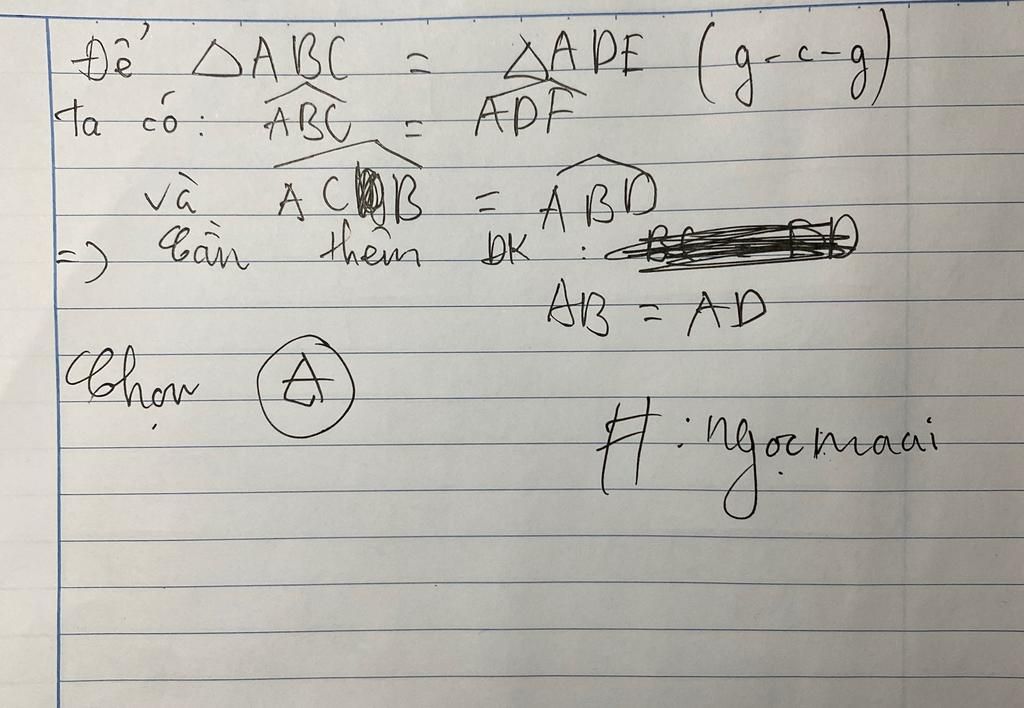 Để △ABC = △ADE (g-c-g)
ta có: ABC = ADF
và ACB = ABD
=> Cần thêm ĐK :
AB = AD
Chọn A
# : ngọcmaai